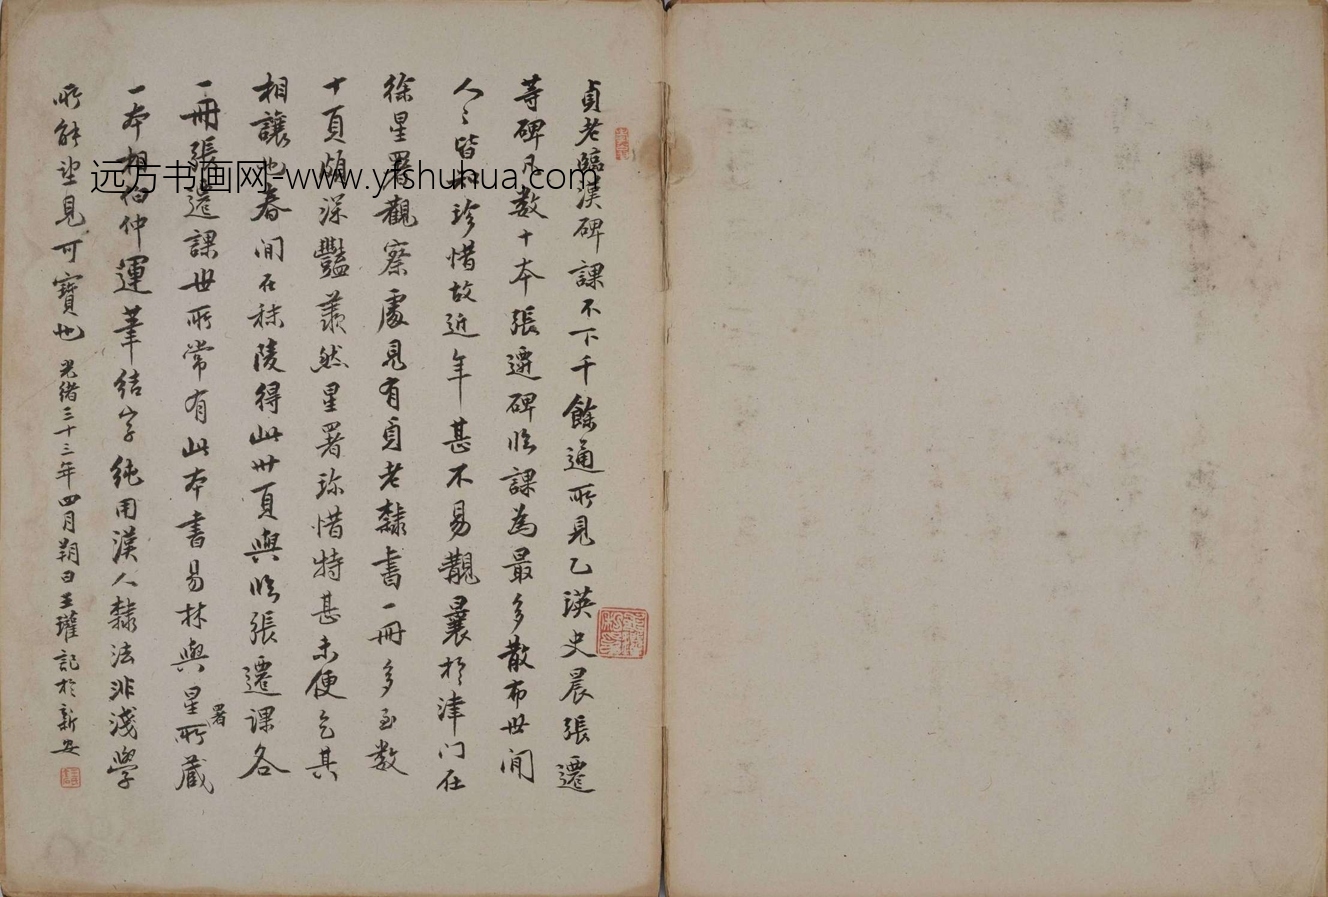 貞老臨漢碑課不下千餘通所見乙瑛史晨張遷
等碑凡数十本張遷碑臨課為最多散布世间
人〻皆知珍惜故近年甚不易覯曩於津门在
徐星署觀察處見有貞老隸書一冊多至数
十頁頗深豔羨然星署珎惜特甚未便乞其
相讓也春间在秣陵得此卅頁與臨張遷課各
一冊張遷課世所常有此本書易林與星署所蔵
一本相伯仲運筆結字純用漢人隸法非淺學
所能望見可寶也光緒三十三年四月朔日王瓘記於新安
远方书画网-www.yfshuhua.com